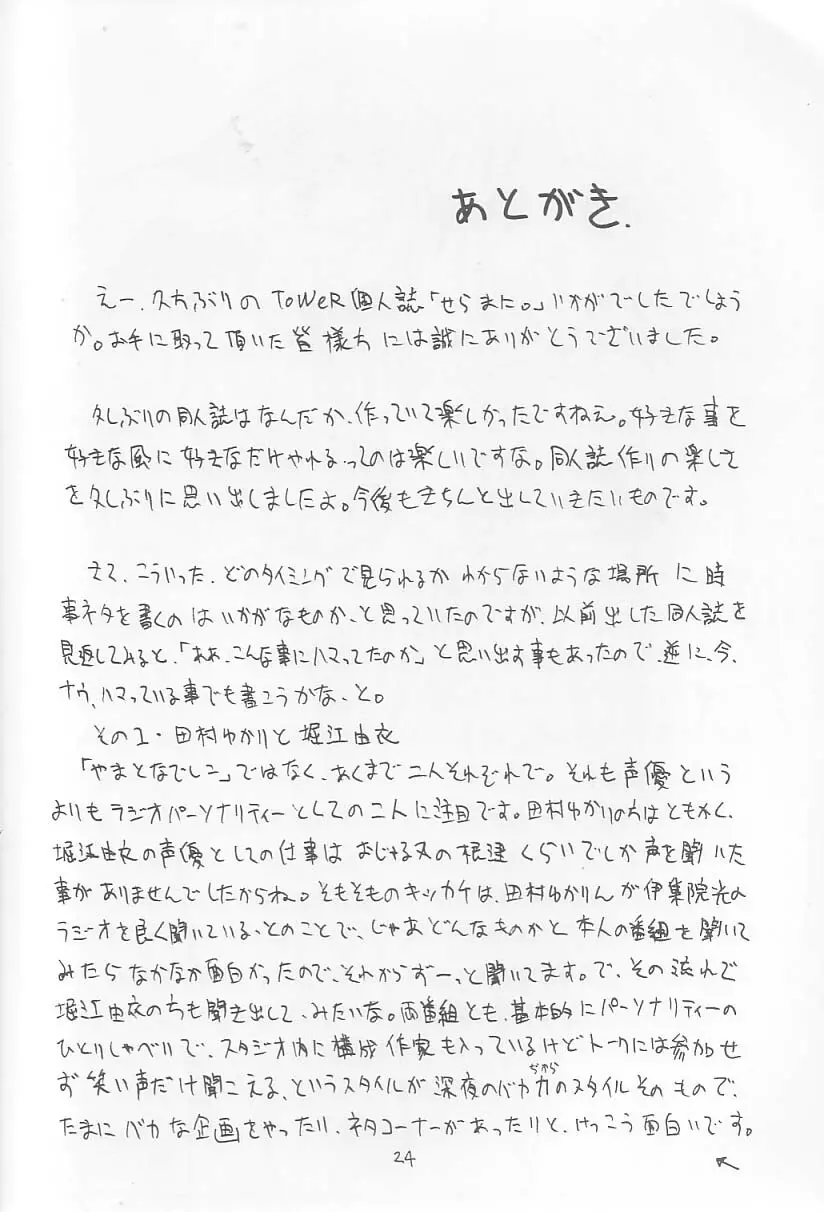 あとがき.
えー、久方ぶりのToWeR個人誌「せらまに。」いかがでしたでしょう
か。お手に取って頂いた皆様方には誠にありがとうございました。
久しぶりの同人誌はなんだか、作っていて楽しかったですねえ。好きな事を
好きな風に好きなだけやれる、ってのは楽しいですな。同人誌作りの楽しさ
を久しぶりに思い出しましたよ。今後もきちんと出していきたいものです。
さて、こういった、どのタイミングで見られるかわからないような場所に時
事ネタを書くのはいかがなものか、と思っていたのですが、以前出した同人誌を
見返してみると、「ああ、こんな事にハマってたのか」と思い出す事もあったので、逆に、今、
ナウ、ハマっている事でも書こうかな、と。
その1・田村ゆかりと堀江由衣
「やまとなでしこ」ではなく、あくまで二人それぞれで。それも声優という
よりもラジオパーソナリティーとしての二人に注目です。田村ゆかりの方はともかく、
堀江由衣の声優としての仕事はおじゃる丸の
くらいでしか声を聞いた
事がありませんでしたからね。そもそものキッカケは、田村ゆかりんが伊集院光の
ラジオを良く聞いている、とのことで、じゃあどんなものかと本人の番組を聞いて
みたらなかなか面白かったので、それからずーっと聞いてます。で、その流れで
堀江由衣のも聞き出して、みたいな。両番組とも、基本的にパーソナリティーの
ひとりしゃべりで、スタジオ内に構成作家も入っているけどトークには参加せ
ず笑い声だけ聞こえる、というスタイルが深夜のバカ力(ぢから)のスタイルそのもので、
たまにバカな企画をやったり、ネタコーナーがあったりと、けっこう面白いです。
24